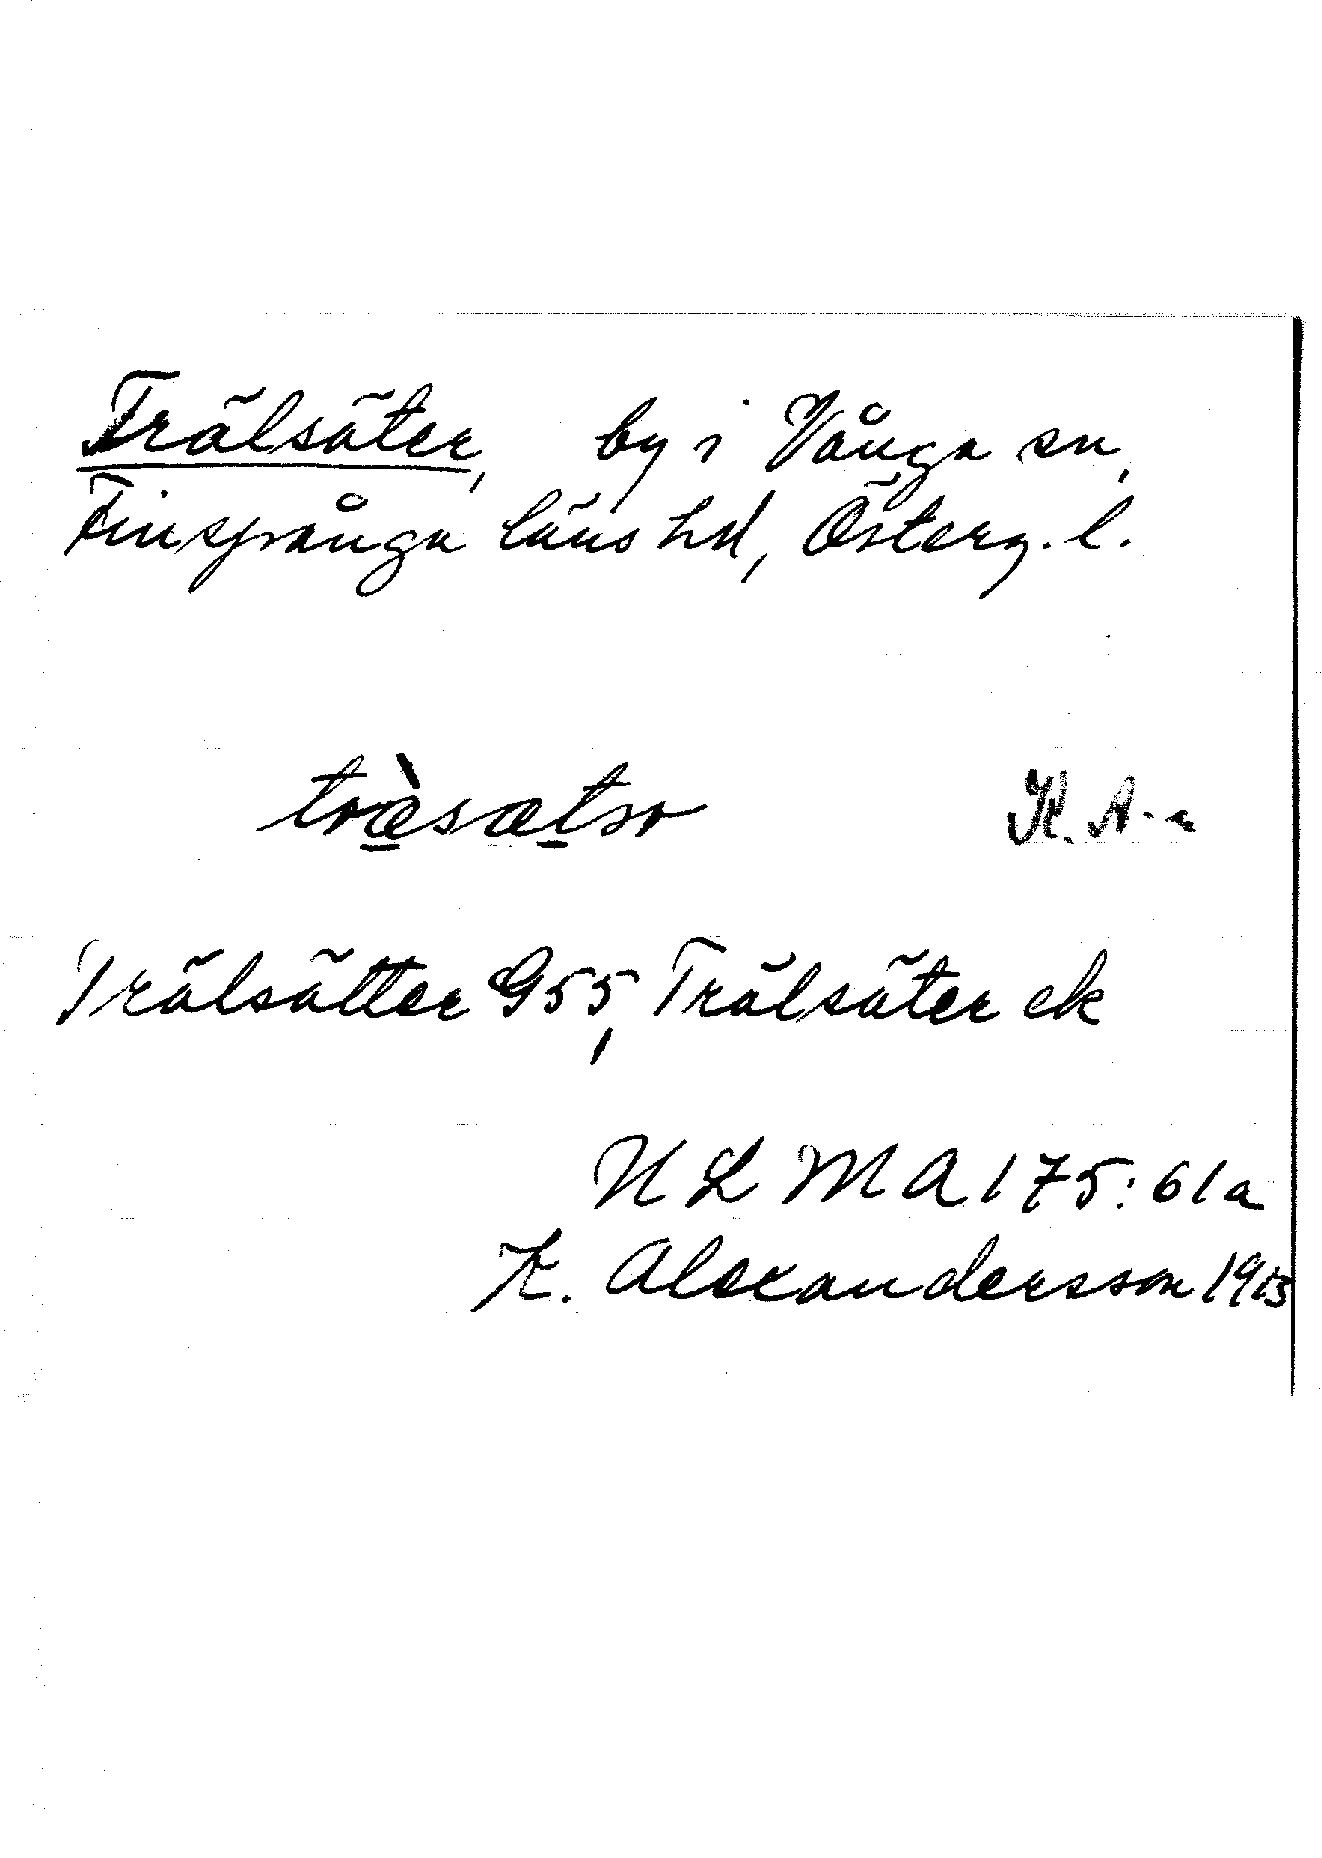 Trälsäter, by i Vånga sn,
Finspånga läns hd, Österg. l.
træ̀sætər K. A-n
Trälsätter G55, Trälsäter ek
ULMA 175:61a
K. Alexandersson 1913